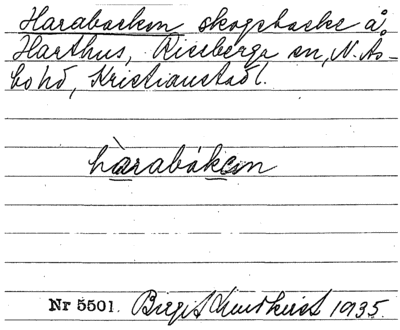 Harabacken skogsbacke å
Harthus, Riseberga sn, N. Ås-
bo hd, Kristianstads l.
hàrabáken
Nr 5501. Birgit Lundkvist 1935.